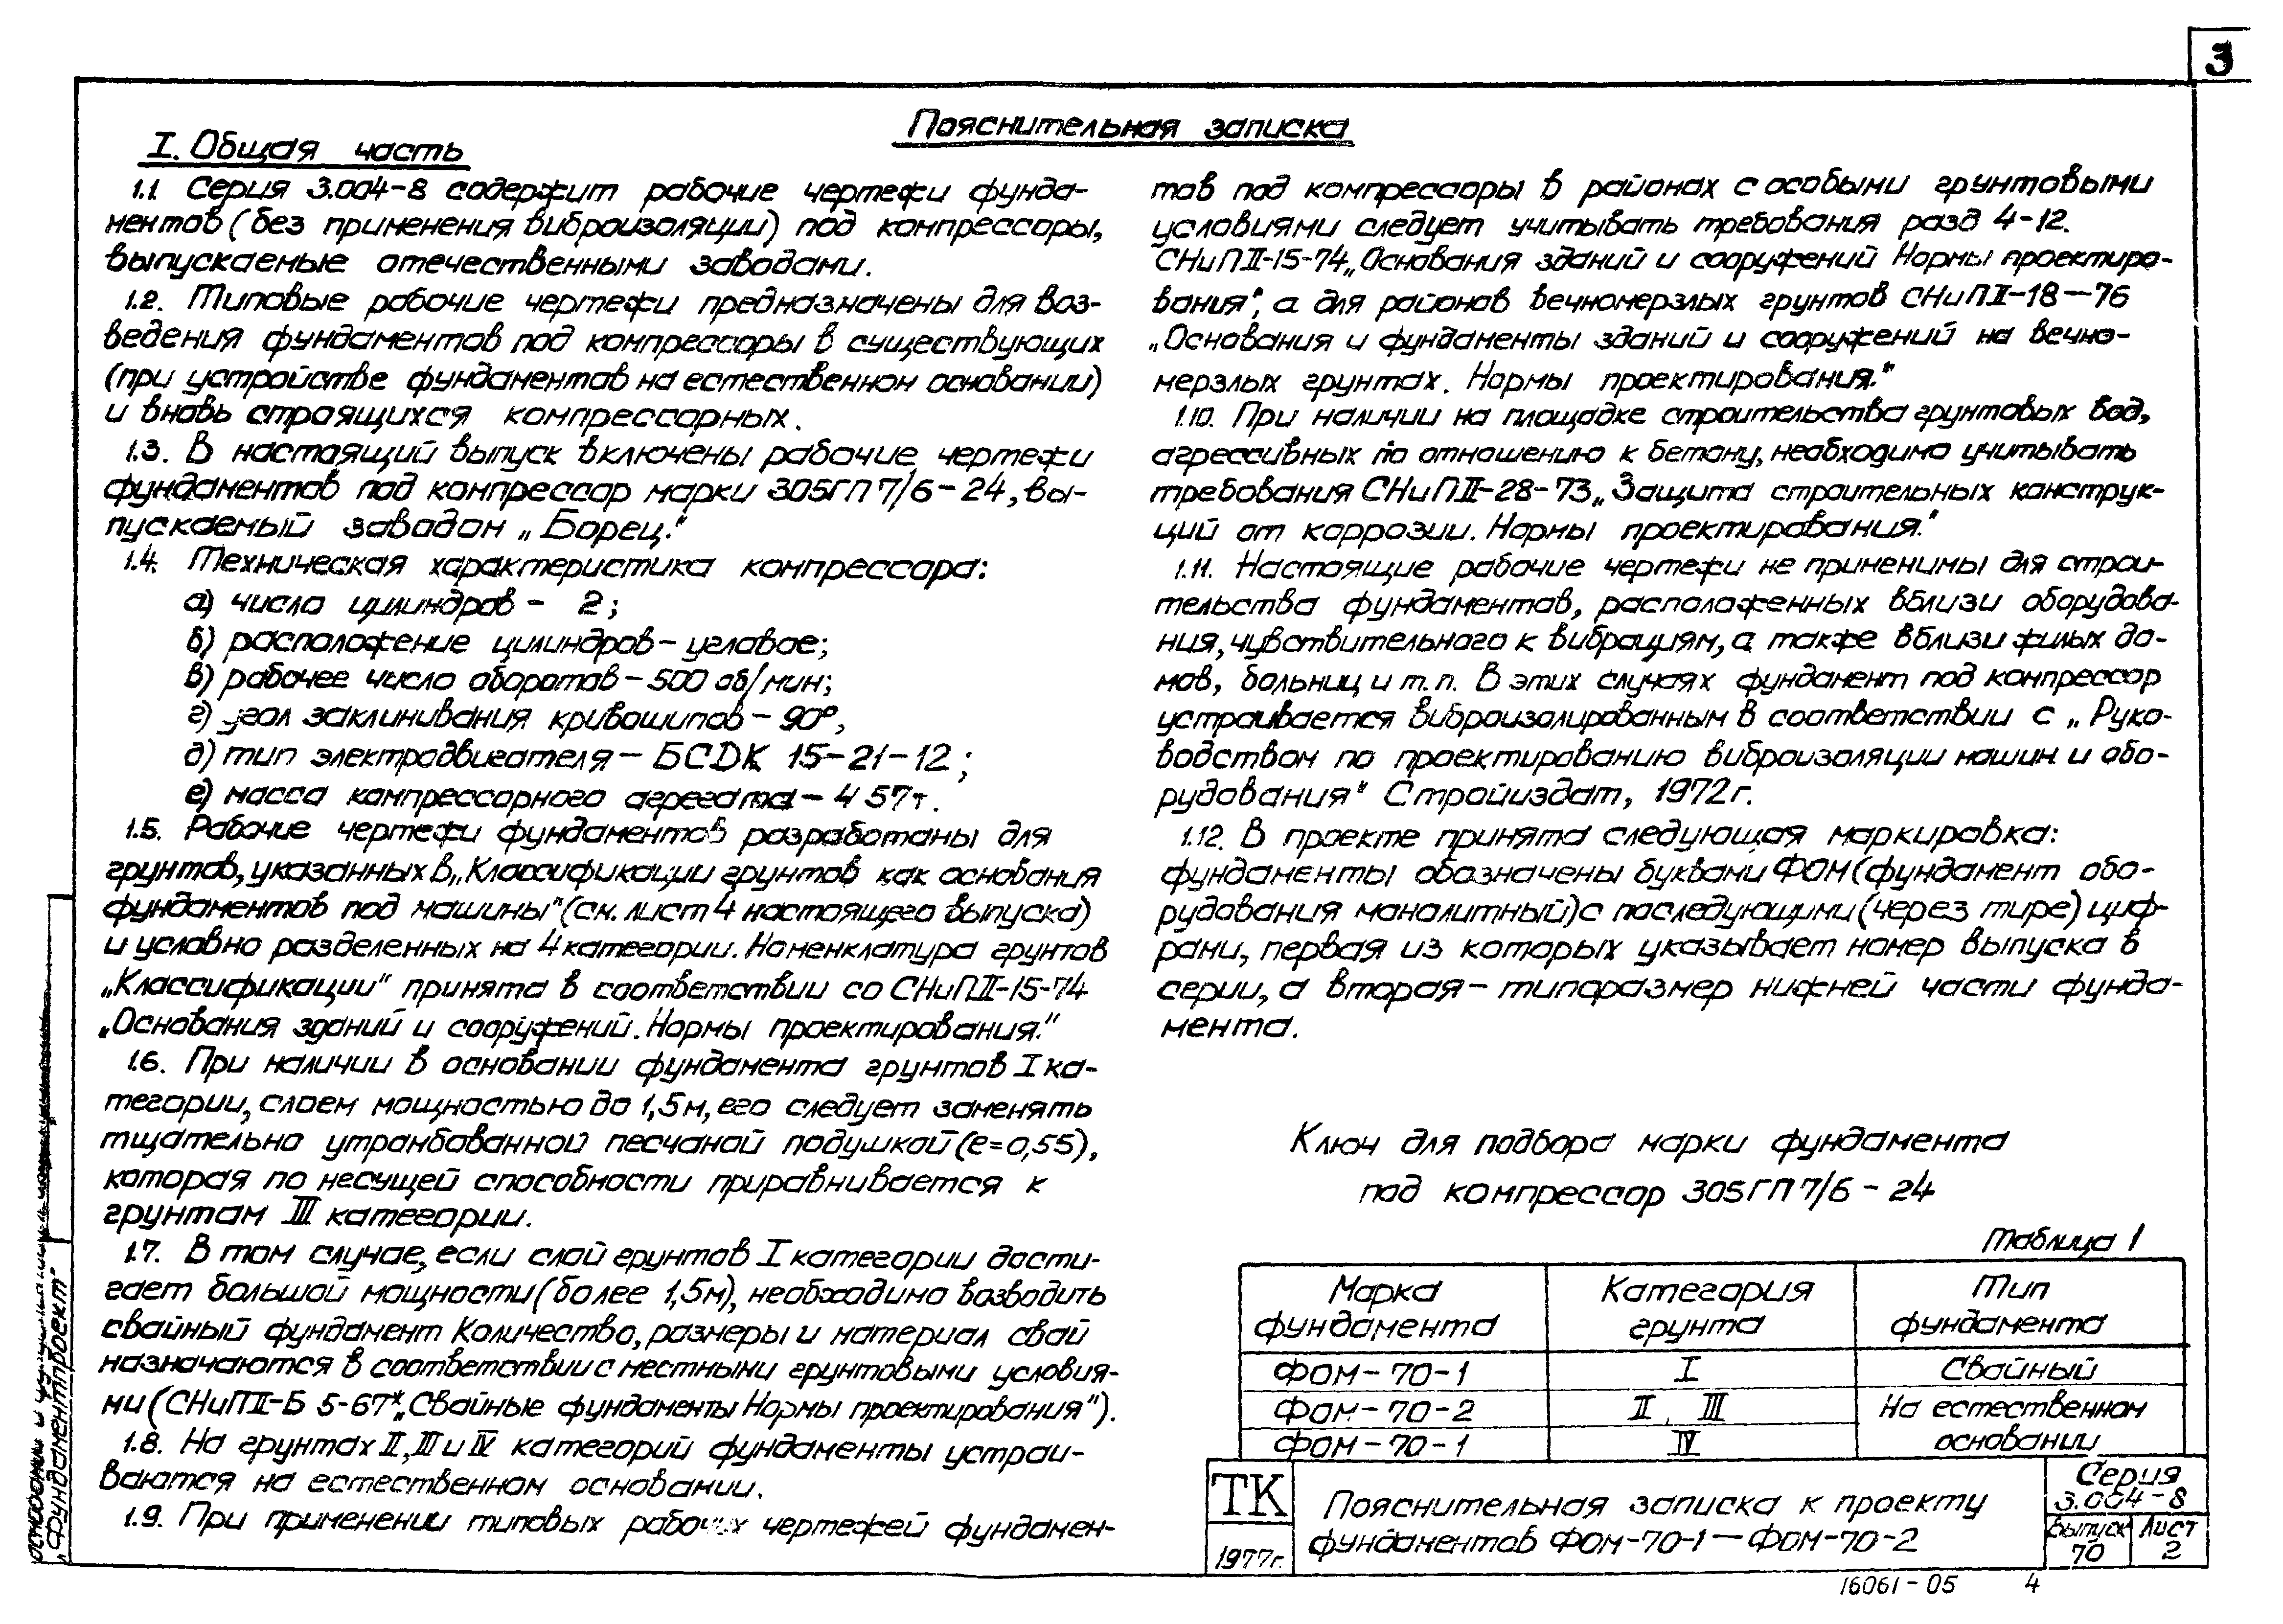 3
Пояснительная записка
I. Общая часть
1.1 Серия 3.004-8 содержит рабочие чертежи фунда-
ментов (без применения виброизоляции) под компрессоры,
выпускаемые отечественными заводами.
1.2. Типовые рабочие чертежи предназначены для воз-
ведения фундаментов под компрессоры в существующих
(при устройстве фундаментов на естественном основании)
и вновь строящихся компрессорных.
1.3. В настоящий выпуск включены рабочие чертежи
фундаментов под компрессор марки 305ГП 7/6-24, вы-
пускаемый заводом „Борец."
1.4. Техническая характеристика компрессора:
а) число цилиндров - 2;
б) расположение цилиндров - угловое;
в) рабочее число оборотов - 500 об/мин;
г) угол заклинивания кривошипов - 90°,
д) тип электродвигателя - БСДК 15-21-12;
е) масса компрессорного агрегата - 4 57т.
1.5. Рабочие чертежи фундаментов разработаны для
грунтов, указанных в „Классификации грунтов как основания
фундаментов под машины" (см. лист 4 настоящего выпуска)
и условно разделенных на 4 категории. Номенклатура грунтов
„Классификации" принята в соответствии со СНиП II-15-74
„Основания зданий и сооружений. Нормы проектирования."
1.6. При наличии в основании фундамента грунтов I ка-
тегории, слоем мощностью до 1,5м, его следует заменять
тщательно утрамбованной песчаной подушкой (е=0,55),
которая по несущей способности приравнивается к
грунтам III категории.
1.7. В том случае, если слой грунтов I категории дости-
гает большой мощности (более 1,5м), необходимо возводить
свайный фундамент Количество, размеры и материал свай
назначаются в соответствии с местными грунтовыми условия-
ми (СНиП II-Б 5-67* „Свайные фундаменты Нормы проектирования").
1.8. На грунтах II, III и IV категорий фундаменты устраи-
ваются на естественном основании.
1.9. При применении типовых рабочих чертежей фундамен-
тов под компрессоры в районах с особыми грунтовыми
условиями следует учитывать требования разд 4-12.
СНиП II-15-74 „Основания зданий и сооружений Нормы проектиро-
вания", а для районов вечномерзлых грунтов СНиП II-18-76
„Основания и фундаменты зданий и сооружений на вечно-
мерзлых грунтах. Нормы проектирования."
1.10. При наличии на площадке строительства грунтовых вод,
агрессивных по отношению к бетону, необходимо учитывать
требования СНиП II-28-73 „Защита строительных конструк-
ций от коррозии. Нормы проектирования."
1.11. Настоящие рабочие чертежи не применимы для строи-
тельства фундаментов, расположенных вблизи оборудова-
ния, чувствительного к вибрациям, а также вблизи жилых до-
мов, больниц и т.п. В этих случаях фундамент под компрессор
устраивается виброизолированным в соответствии с „Руко-
водством по проектированию виброизоляции машин и обо-
рудования" Стройиздат, 1972г.
1.12. В проекте принята следующая маркировка:
фундаменты обозначены буквами ФОМ (фундамент обо-
рудования монолитный) с последующими (через тире) циф-
рами, первая из которых указывает номер выпуска в
серии, а вторая - типоразмер нижней части фунда-
мента.
Ключ для подбора марки фундамента
под компрессор 305ГП 7/6-24
Таблица 1
Марка фундамента Категория грунта Тип фундамента
ФОМ-70-1 I Свайный
ФОМ-70-2 II, III На естественном
ФОМ-70-1 IV основании
ТК
1977г.
Пояснительная записка к проекту
фундаментов ФОМ-70-1 — ФОМ-70-2
Серия
3.004-8
Выпуск Лист
70 2
16061-05 4
„Фундаментпроект"